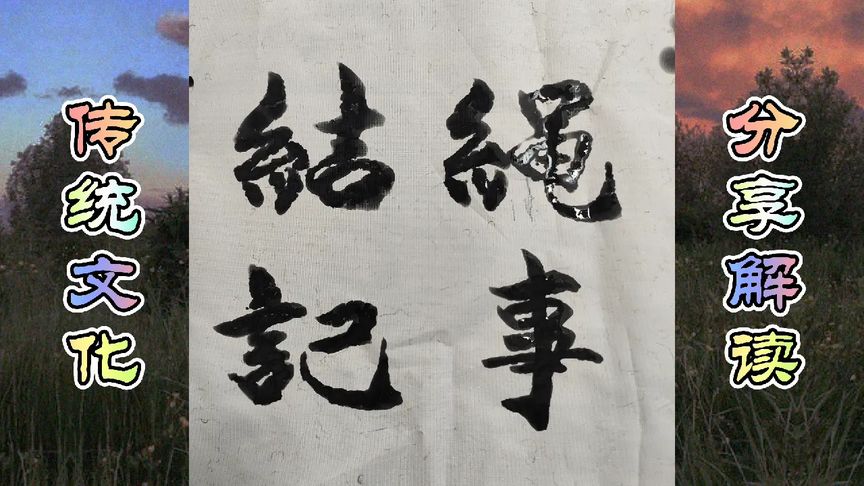 传统文化
結繩
記事
分享解读